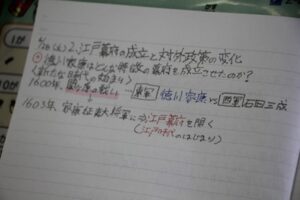 4/20(火) 2.江戸幕府の成立と対外政策の変化
徳川家康はどんな特徴の幕府を成立させたのか?
(新たな時代の始まり)
1600年、関ヶ原の戦い → 東軍 徳川家康 vs 西軍 石田三成
1603年、家康 征夷大将軍に 江戸幕府を開く
(江戸時代のはじまり)